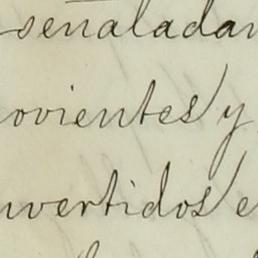 señaladan
ovientes y
nvertidos e